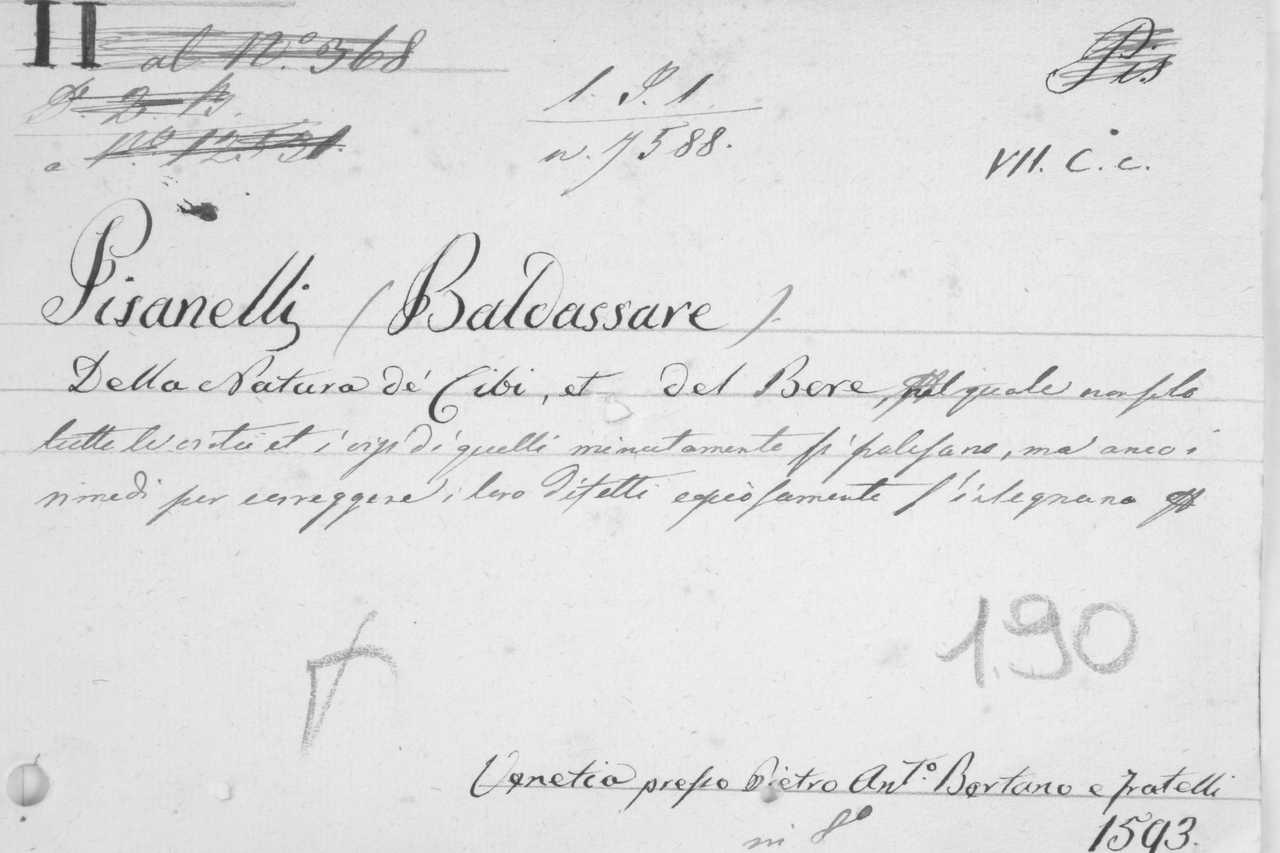 II al N.º 368
Pis
1. P. 1.
n. 7588.
VII. C. c.
Pisanelli (Baldassare).
Della Natura dé Cibi, et del Bere, nel quale non solo
tutte le virtù et i vizj di quelli minutamente si palesano, ma anco i
rimedi per correggere i loro difetti copiosamente s'insegnano
190
Venetia presso Pietro Ant.º Bertano e fratelli
in 8º
1593.